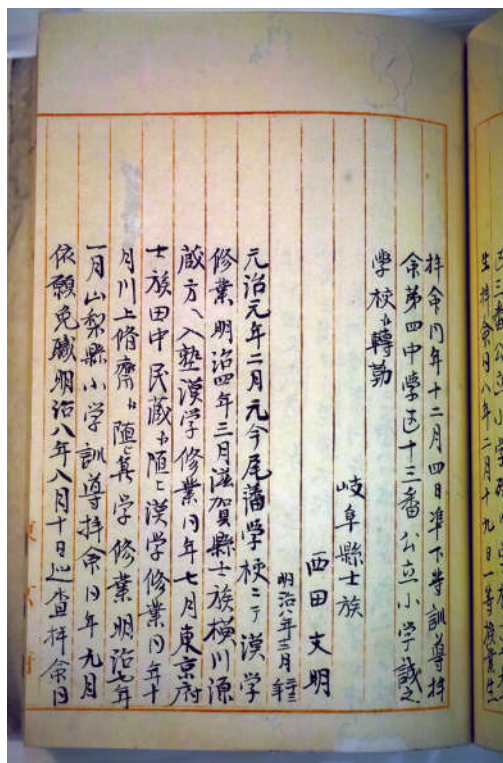 生拝命同八年二月十九日一等授業生
拝命同年十二月四日準下等訓導拝
命第四中学区十三番公立小学誠之
学校ヘ轉勤
岐阜縣士族
西田文明
明治八年三月
元治元年二月元今尾藩学校ニテ漢学
修業明治四年三月滋賀縣士族横川源
蔵方ヘ入塾漢学修業同年七月東京府
士族田中民蔵ヘ随ヒ漢学修業同年十
月川上脩齋ヘ随ヒ算学修業明治七年
一月山梨縣小学訓導拝命同年九月
依願免職明治八年八月十日巡査拝命同
東京府